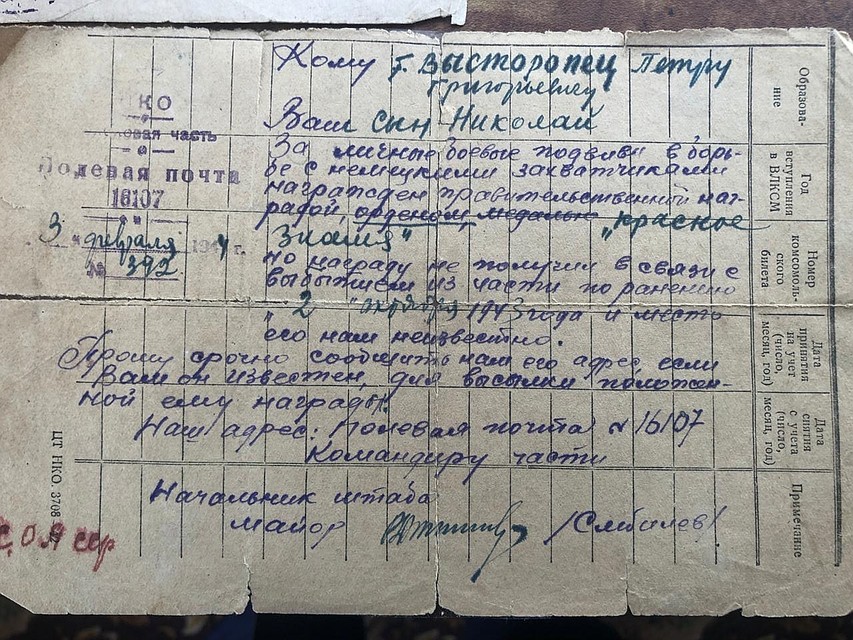 Кому г. Высторопец Петру
Григорьевичу
Ваш сын Николай
За личные боевые подвиги в борь-
бе с немецкими захватчиками
награжден правительственной наг-
радой, орденом, медалью "Красное
Знамя"
но награду не получил в связи с
выбытием из части по ранению
"2" октября 1943 года и место
его нам неизвестно.
Прошу срочно сообщить нам его адрес, если
Вам он известен, для высылки положен-
ной ему награды.
Наш адрес: Полевая почта № 16107
Командиру части
Начальник штаба
майор /
НКО
часть
Полевая почта
16107
3 февраля 1944 г.
№ 392
Образова-
ние
Год
вступления
в ВЛКСМ
Номер
комсомоль-
ского
билета
Дата
принятия
на учет
(число,
месяц, год)
Дата
снятия
с учета
(число,
месяц, год)
Примечание
ЦТ НКО. 3708